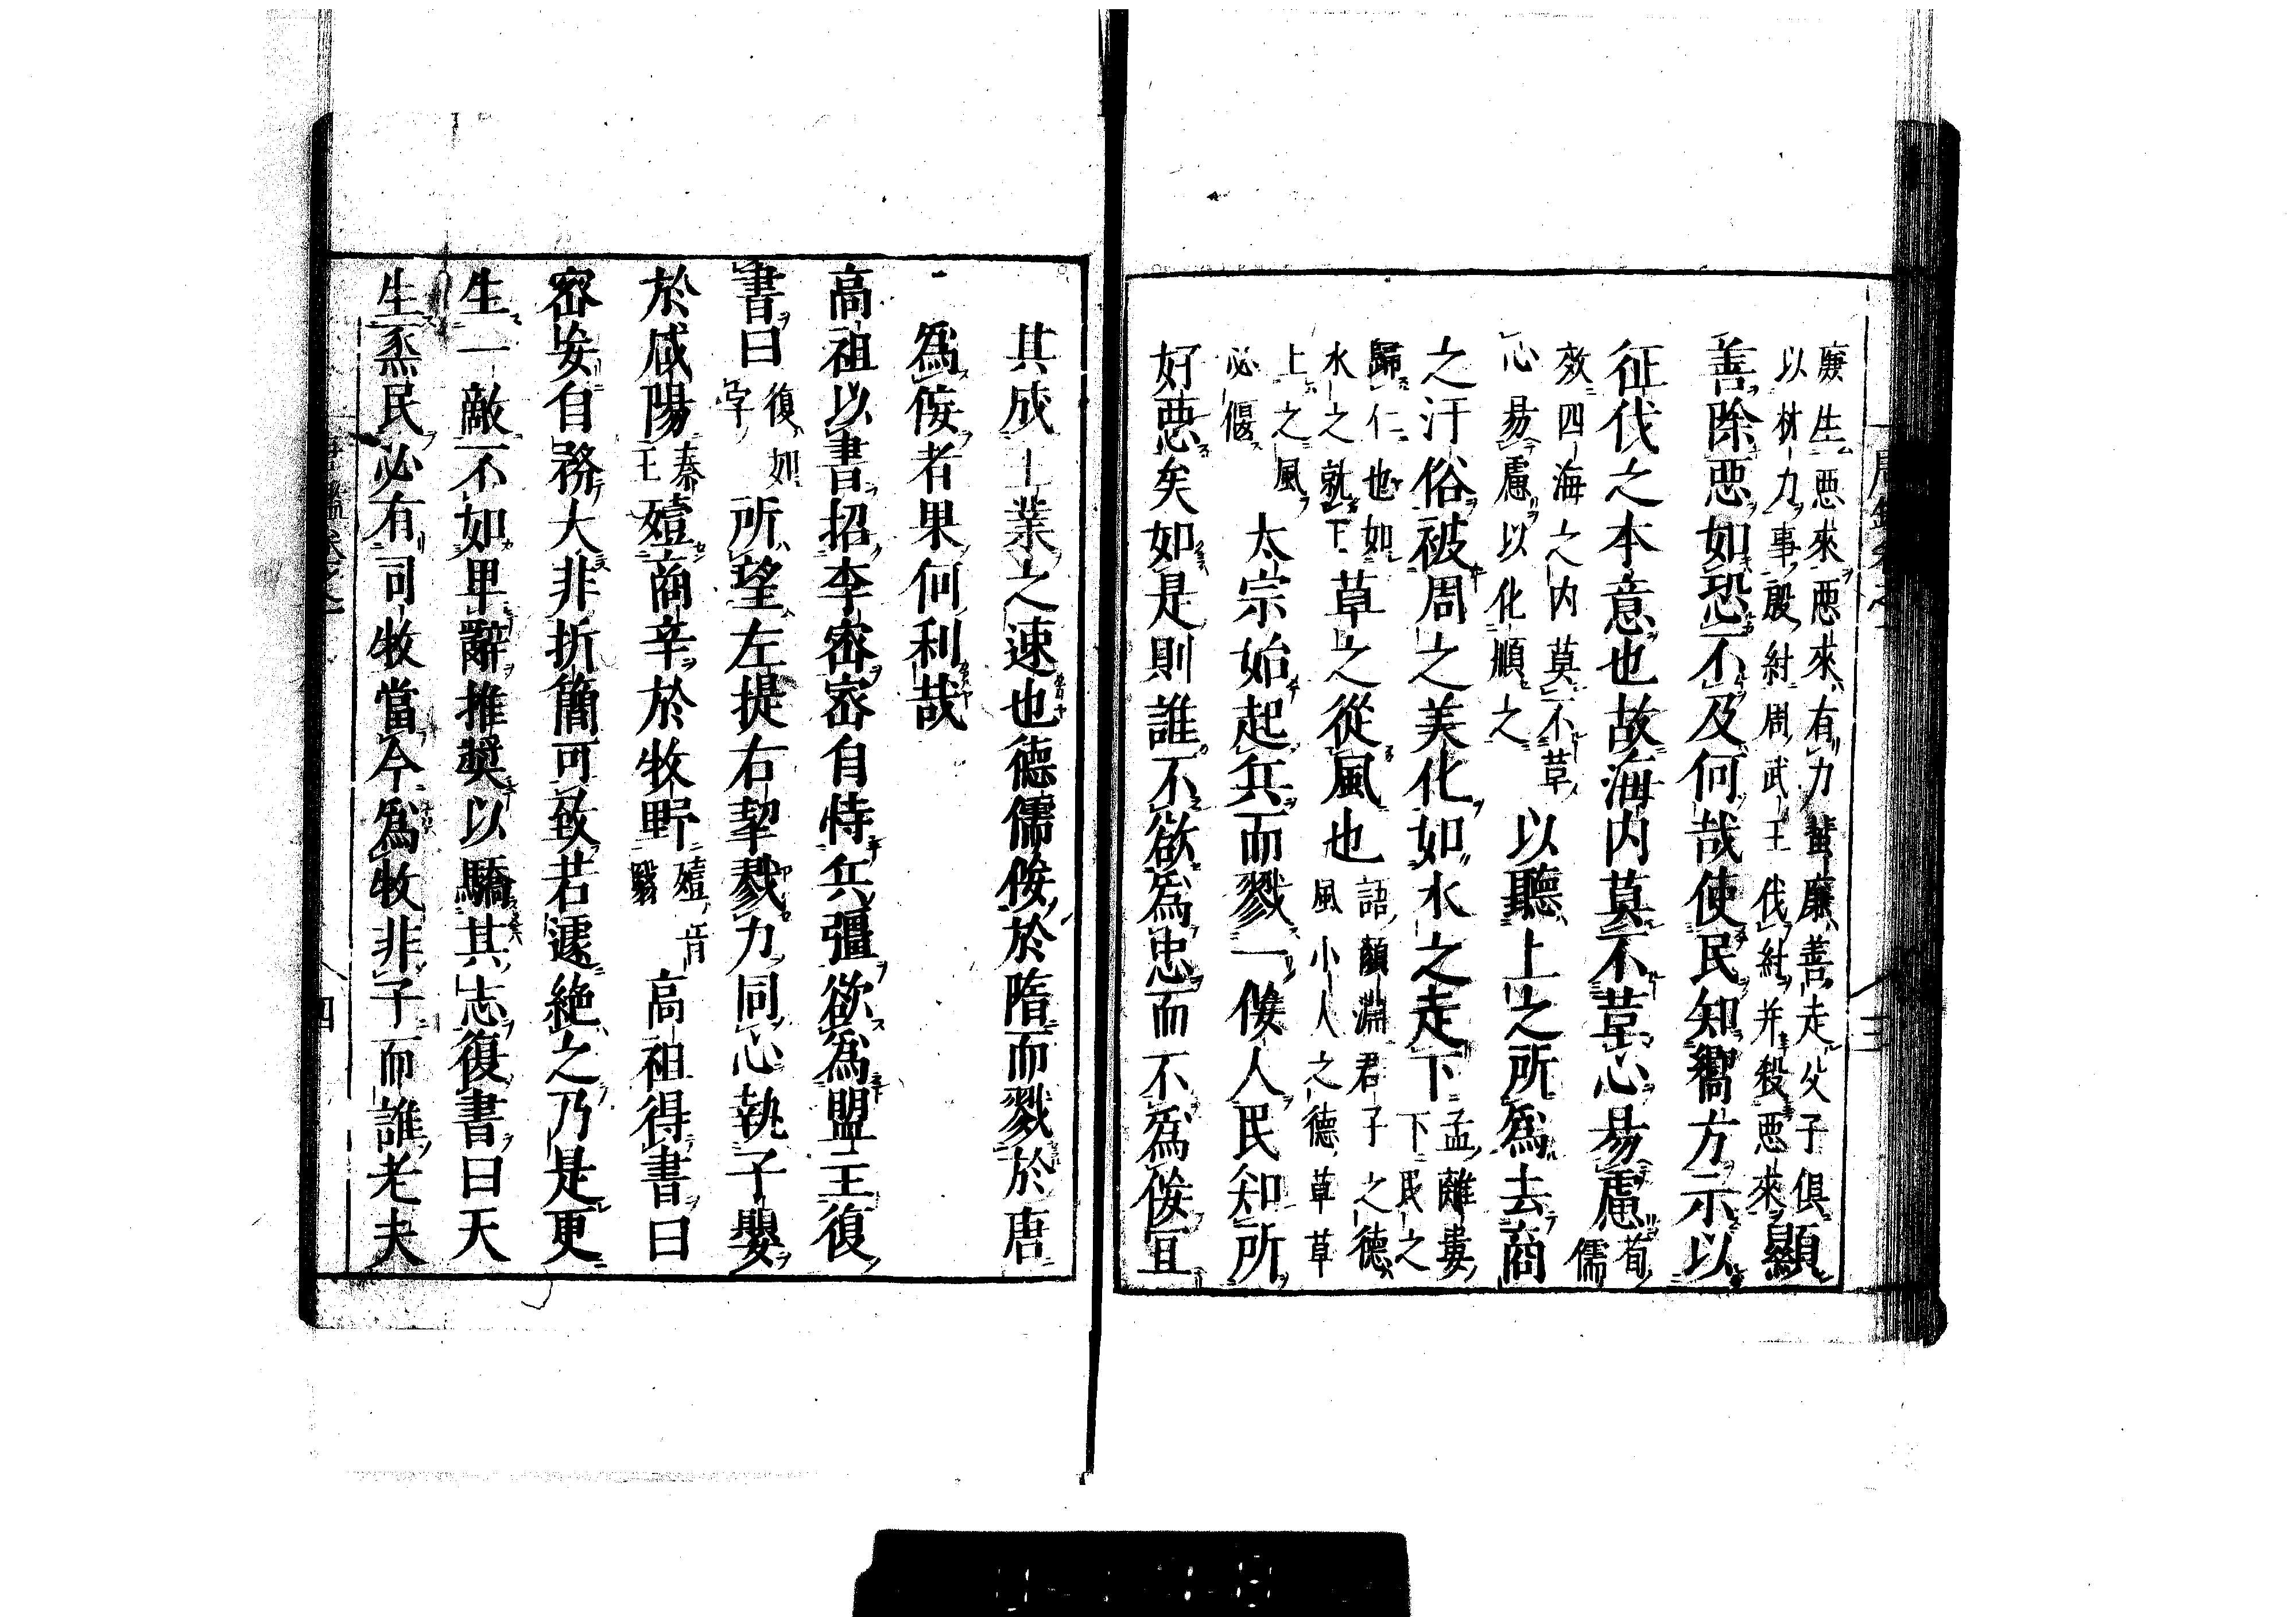 廉生惡來惡來有力蜚廉善走父子俱
以材力事殷紂周武王伐紂并殺惡來顯
善除惡如恐不及何哉使民知嚮方示以
征伐之本意也故海内莫不革心易慮荀儒
效四海之内莫不革
心易慮以化順之以聽上之所爲去商
之汙俗被周之美化如水之走下孟離婁
下民之
歸仁也如
水之就下草之從風也語顏淵君子之德
風小人之德草草
上之風
必偃太宗始起兵而戮一佞人民知所
好惡矣如是則誰不欲爲忠而不爲佞宜
其成王業之速也德儒佞於隋而戮於唐
爲佞者果何利哉
高祖以書招李密密自恃兵彊欲爲盟主復
書曰復如
字所望左提右挈戮力同心執子嬰
於咸陽秦
王殪商辛於牧野殪音
翳高祖得書曰
密妄自矜大非折簡可致若遽絶之乃是更
生一敵不如卑辭推奬以驕其志復書曰天
生烝民必有司牧當今爲牧非子而誰老夫
四